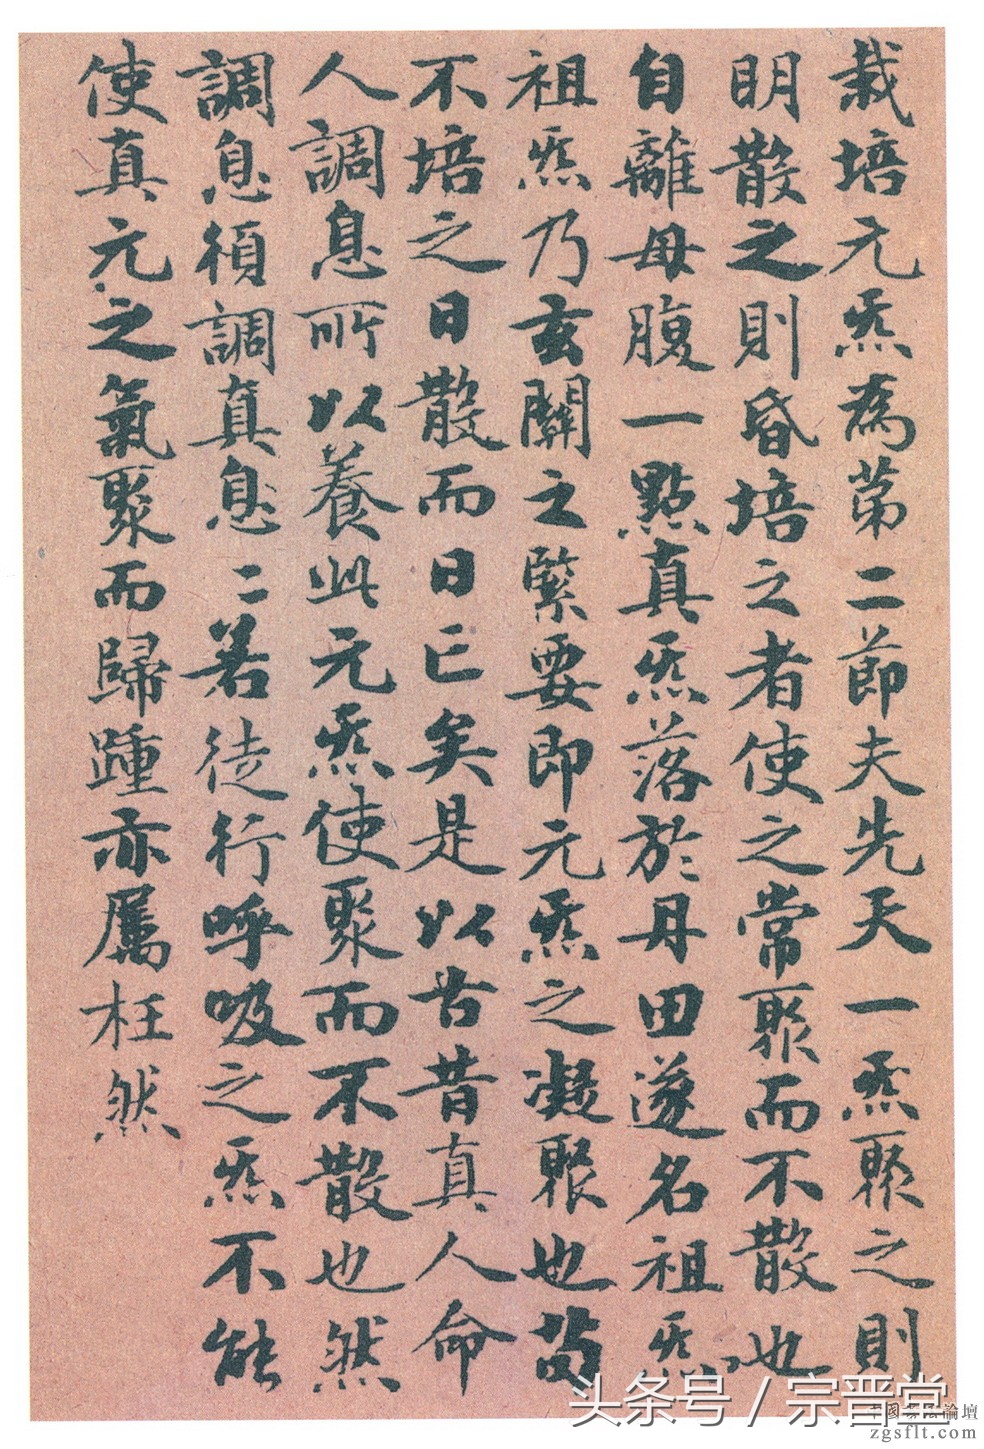 栽培元炁為第二節夫先天一炁聚之則
明散之則昏培之者使之常聚而不散也
自離母腹一點真炁落於丹田遂名祖炁
祖炁乃玄關之緊要即元炁之凝聚也苟
不培之日散而日亡矣是以古昔真人命
人調息所以養此元炁使聚而不散也然
調息須調真息二若徒行呼吸之炁不能
使真元之氣聚而歸踵亦屬枉然
头条号 / 宗晋堂
中國書法論壇
zgsflt.com